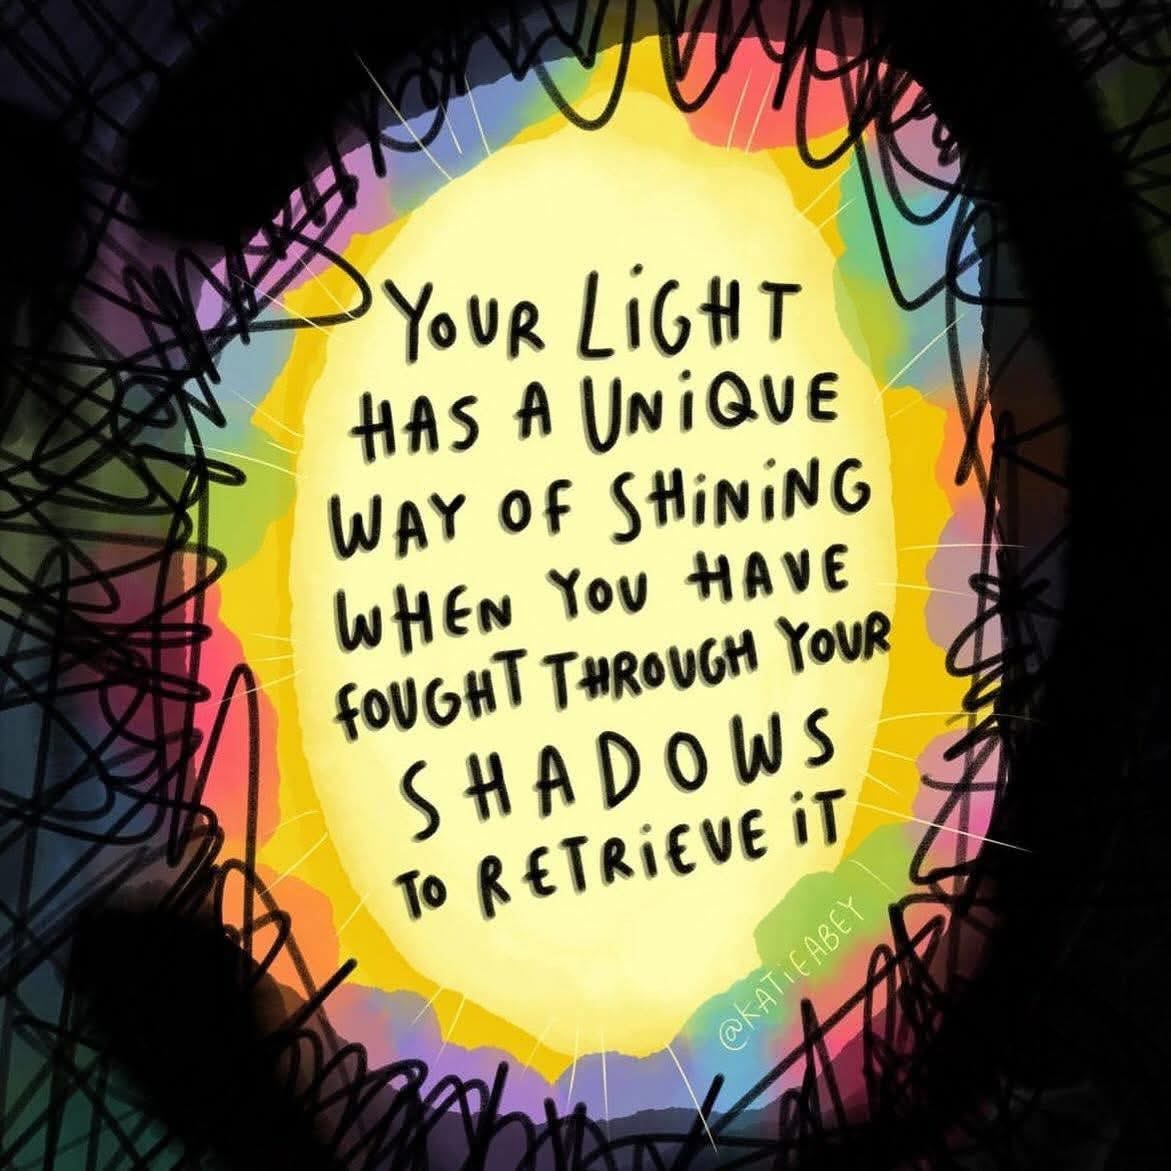 YOUR LiGHT
HAS A UNiQUE
WAY OF SHiNiNG
WHEN YOU HAVE
FOUGHT THROUGH YOUR
SHADOWS
TO RETRiEVE iT
@KATiEABEY